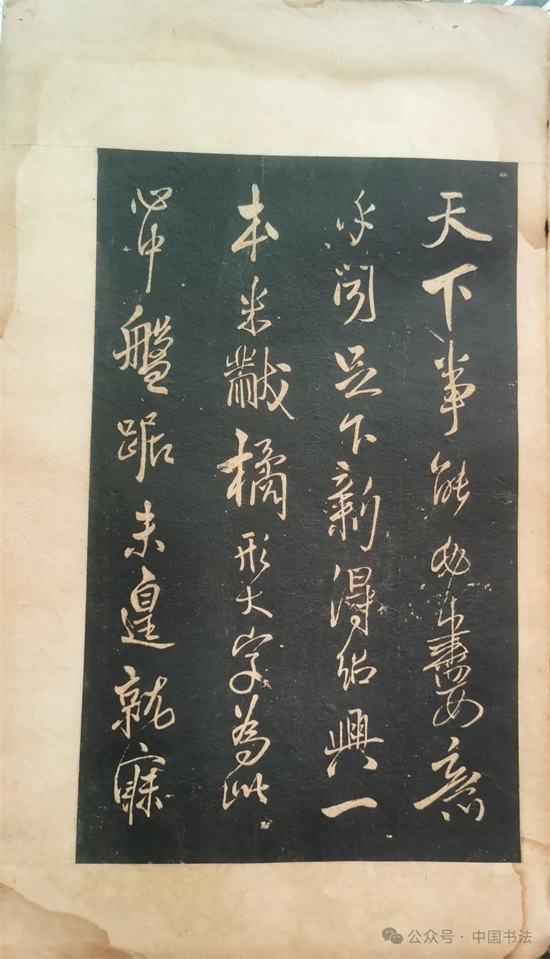 天下事能必盡如意
乎聞足下新得紹興一
本米黻橘形大字為此
心中盤踞未遑就寐
公众号·中国书法